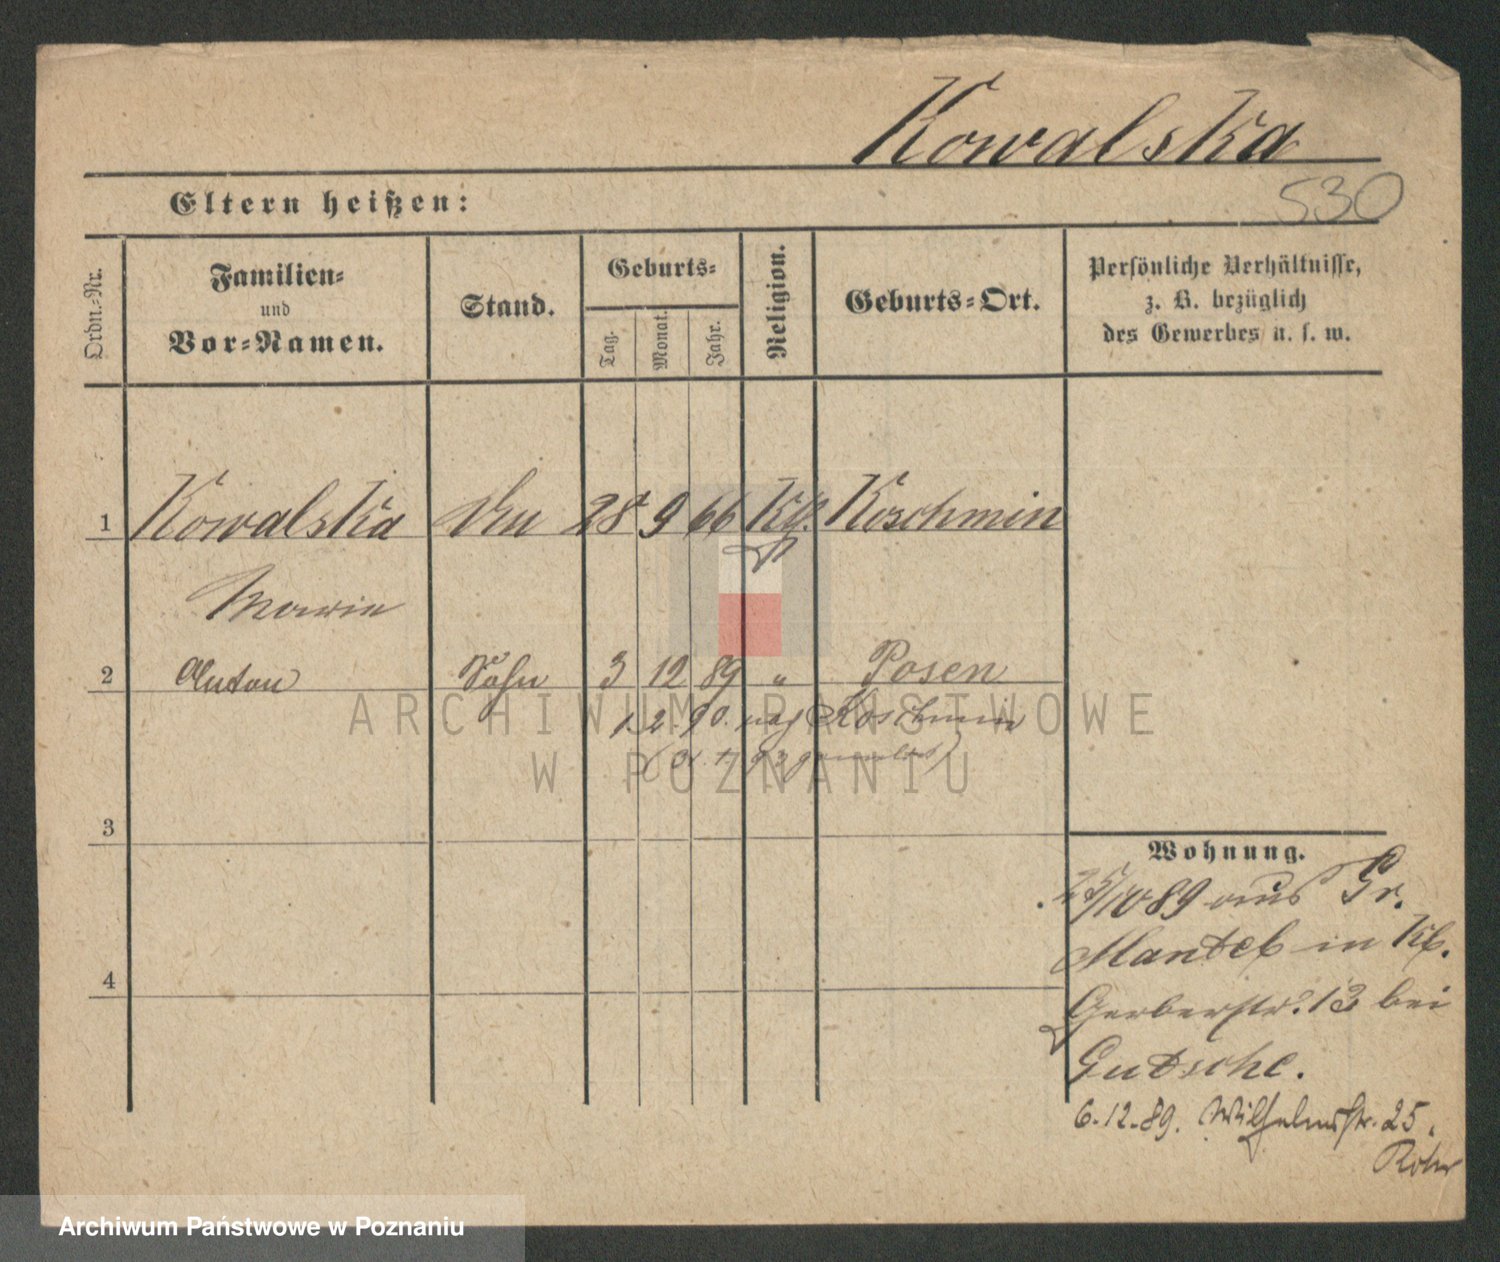 Kowalska
530
Eltern heißen:
Ordn.-Nr.
Familien-
und
Vor-Namen.
Stand.
Geburts-
Tag.
Monat.
Jahr.
Religion.
Geburts-Ort.
Persönliche Verhältnisse,
z. B. bezüglich
des Gewerbes u. s. w.
1 Kowalska 28 9 66 Kth. Koschmin
Marie
2 Anton Sohn 3 12 89 " Posen
1. 2. 90. nach Koschmin
3
4
Wohnung.
25/10 89 aus Gr.
in
Gerberstr. 13 bei
Gutsche.
6.12.89. Wilhelmstr. 25.
Rohr
ARCHIWUM PAŃSTWOWE
W POZNANIU
Archiwum Państwowe w Poznaniu